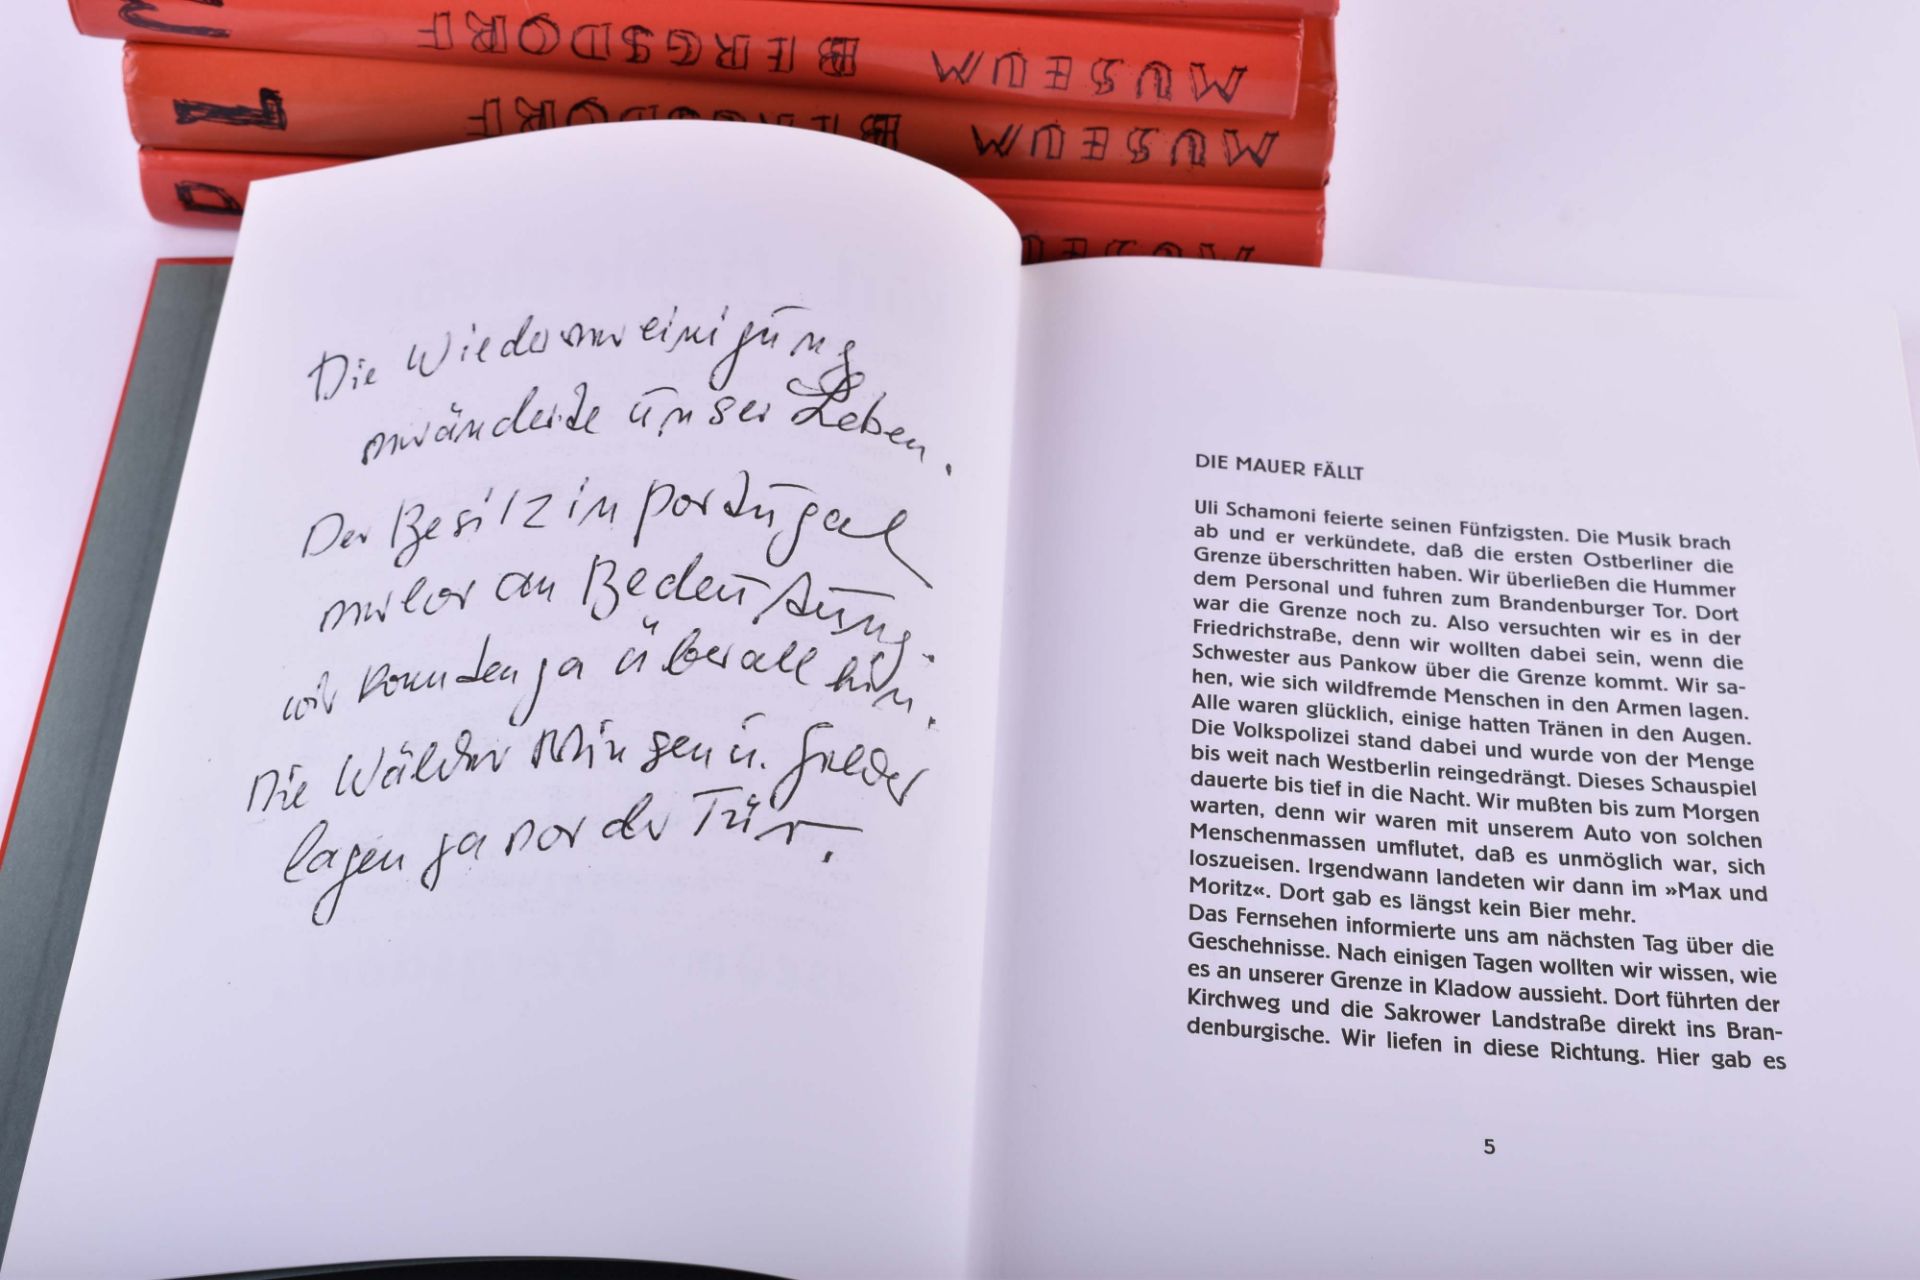 MUSEUM BERGSDORF
MUSEUM BERGSDORF
MUSEUM
Die Wiedervereinigung
veränderte unser Leben.
Der Besitz in Portugal
verlor an Bedeutung.
wir konnten ja überall hin.
Die Wälder Wiesen u. Felder
lagen ja vor der Tür.
DIE MAUER FÄLLT
Uli Schamoni feierte seinen Fünfzigsten. Die Musik brach
ab und er verkündete, daß die ersten Ostberliner die
Grenze überschritten haben. Wir überließen die Hummer
dem Personal und fuhren zum Brandenburger Tor. Dort
war die Grenze noch zu. Also versuchten wir es in der
Friedrichstraße, denn wir wollten dabei sein, wenn die
Schwester aus Pankow über die Grenze kommt. Wir sa-
hen, wie sich wildfremde Menschen in den Armen lagen.
Alle waren glücklich, einige hatten Tränen in den Augen.
Die Volkspolizei stand dabei und wurde von der Menge
bis weit nach Westberlin reingedrängt. Dieses Schauspiel
dauerte bis tief in die Nacht. Wir mußten bis zum Morgen
warten, denn wir waren mit unserem Auto von solchen
Menschenmassen umflutet, daß es unmöglich war, sich
loszueisen. Irgendwann landeten wir dann im »Max und
Moritz«. Dort gab es längst kein Bier mehr.
Das Fernsehen informierte uns am nächsten Tag über die
Geschehnisse. Nach einigen Tagen wollten wir wissen, wie
es an unserer Grenze in Kladow aussieht. Dort führten der
Kirchweg und die Sakrower Landstraße direkt ins Bran-
denburgische. Wir liefen in diese Richtung. Hier gab es
5